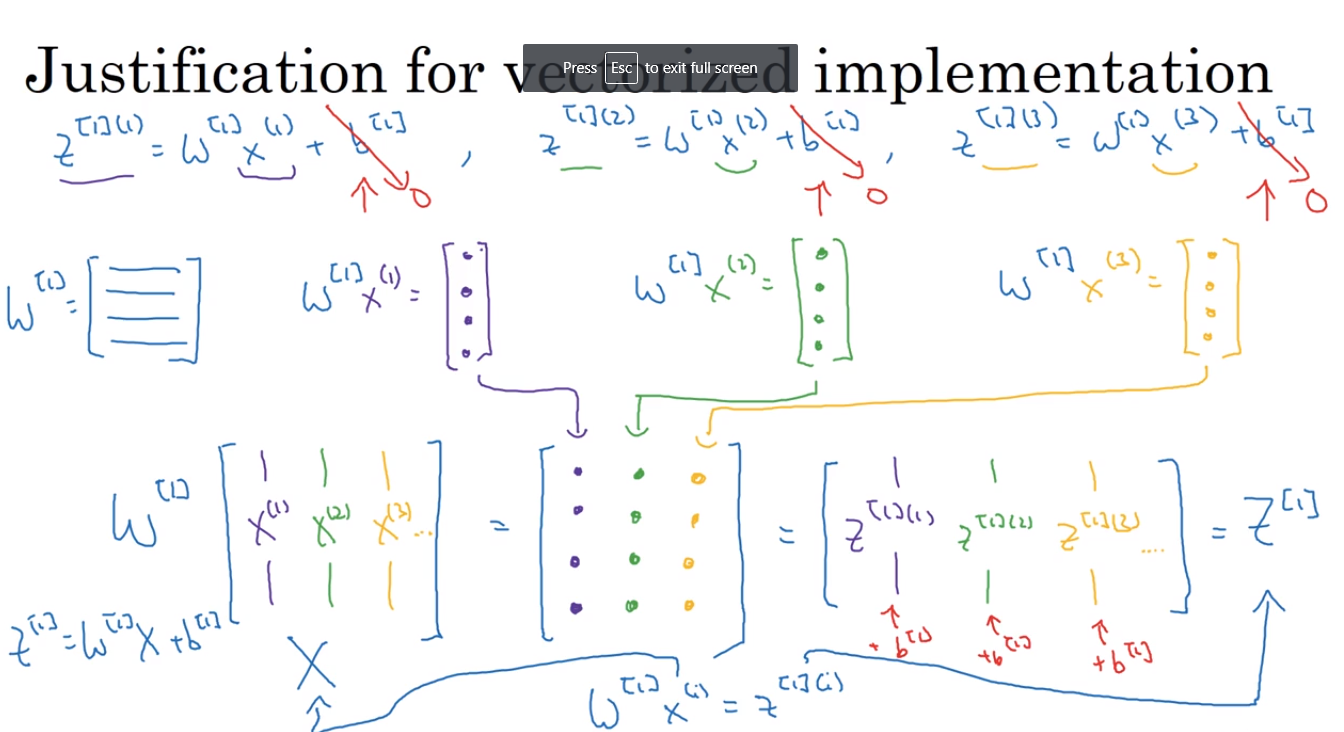 Justification for vectorized implementation
Press Esc to exit full screen
z^[1](1) = W^[1] x^(1) + b^[1] , z^[1](2) = W^[1] x^(2) + b^[1] , z^[1](3) = W^[1] x^(3) + b^[1]
0 0 0
W^[1] = W^[1] x^(1) = W^[1] x^(2) = W^[1] x^(3) =
W^[1] [ x^(1) x^(2) x^(3) ... ] = = [ z^[1](1) z^[1](2) z^[1](3) .... ] = Z^[1]
z^[1] = W^[1] X + b^[1]
X
+ b^[1] + b^[1] + b^[1]
W^[1] x^(i) = z^[1](i)